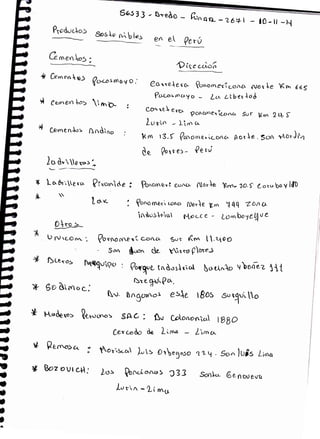 Productos Sostenibles en el Perú
Cementos :
Dirección
* Cementos Pacasmayo : Carretera Panamericana Norte Km 665
Pacasmayo - La Libertad
* Cementos Lima : Carretera panamericana Sur Km
Lurin - Lima
* Cementos Andino : Km 13.5 Panamericana Norte. San Martín
de Porres - Perú
Ladrilleros :
* Ladrillera Piramide : Panamericana Norte Km 30.5 Carabayllo
* " Lark : Panamericana Norte Km 799 Zona
industrial - Lambayeque
Otros :
* UNICON : Panamericana Sur Km 11.400
- San Juan de Miraflores
* : Parque Industrial Jacinto Ybañez
Arequipa.
* Sodimac : Av. Angamos este 1805 Surquillo
* Maderas Peruanas SAC : Av Colonial 1880
Cercado de Lima - Lima
* Remasa : Mariscal Luis Orbegoso San Luis Lima
* BOZOVICH : Los 933 Santa Genoveva
Lurin - Lima